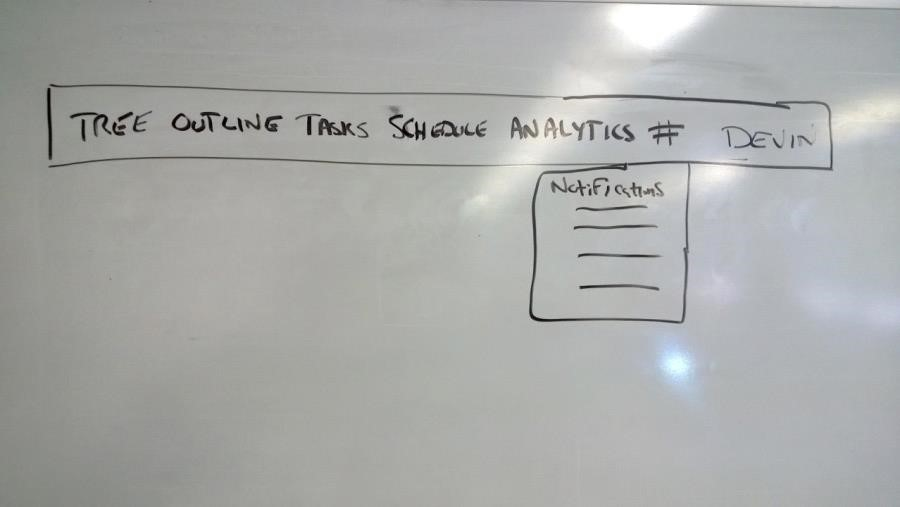 TREE OUTLINE TASKS SCHEDULE ANALYTICS # DEVIN
Notifications